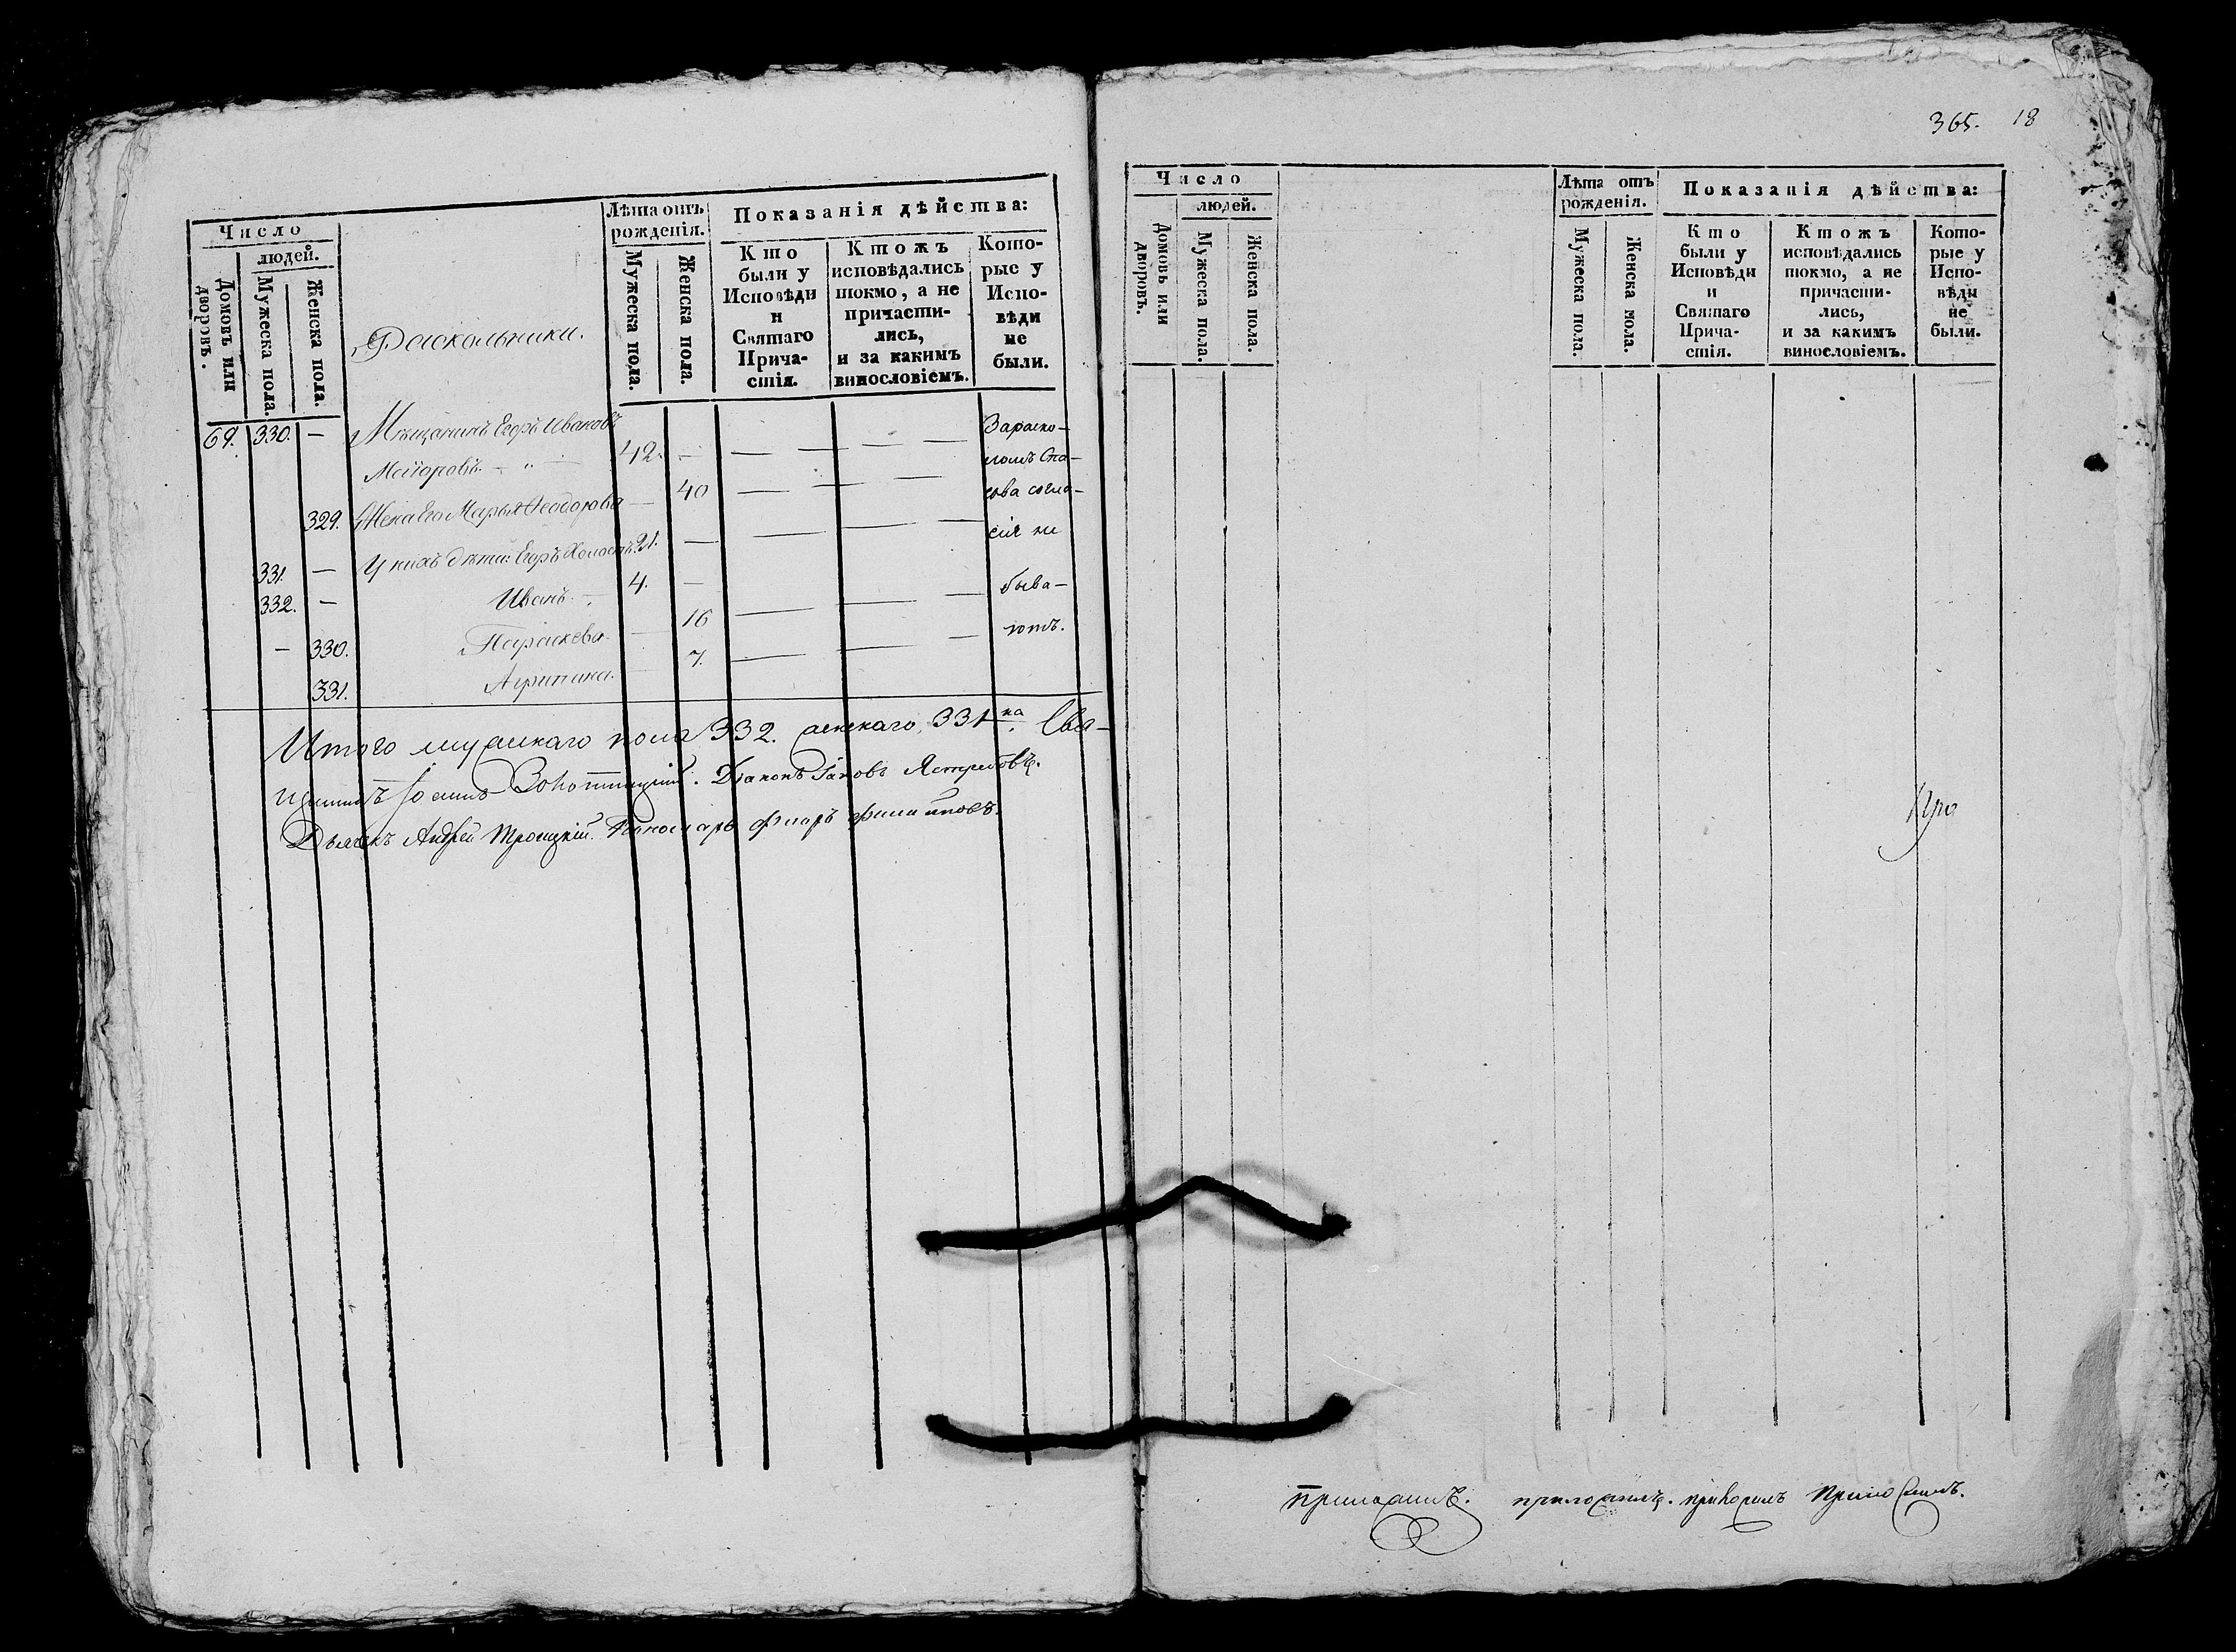 Число
людей.
Домовъ или дворовъ.
Мужеска пола.
Женска пола.
Раскольники.
Лѣта отъ рожденія.
Мужеска пола.
Женска пола.
Показанія дѣйства:
Кто были у Исповѣди и Святаго Прича-стія.
Ктожъ исповѣдались токмо, а не причасти-лись, и за какимъ винословіемъ.
Кото-рые у Испо-вѣди не были.
69. 330. — Мѣщанинъ Егоръ Ивановъ
Маіоровъ. — 42. — — — — Зараско-
ломъ Спа-
329. Жена Его Марья Ѳеодорова — 40 — — — сова согла-
331. — У нихъ дѣти: Егоръ Холостъ. 21. — — — — сія не
332. — Иванъ. — 4. — быва-
— 330. Параскева. — 16 — — — ютъ.
331. Агрипина. 7. — — —
Итого мужскаго пола 332. женскаго, 331-на. Свя-
щенникъ Діаконъ Іаковъ Ястребовъ.
Дьячекъ Андрей Троицкій. Пономарь
365. 18
Число
людей.
Домовъ или дворовъ.
Мужеска пола.
Женска пола.
Лѣта отъ рожденія.
Мужеска пола.
Женска пола.
Показанія дѣйства:
Кто были у Исповѣди и Святаго Прича-стія.
Ктожъ исповѣдались токмо, а не причасти-лись, и за какимъ винословіемъ.
Кото-рые у Испо-вѣди не были.
При
приложилъ.